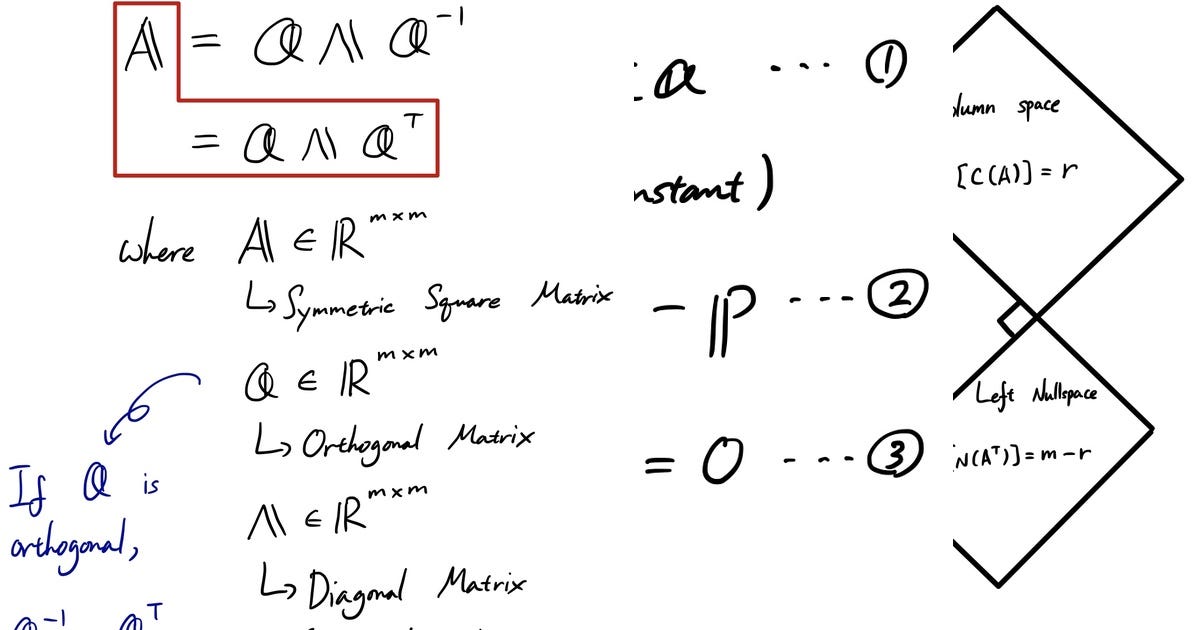 A = Q Λ Q⁻¹
= Q Λ Qᵀ
where A ∈ ℝᵐˣᵐ
↳ Symmetric Square Matrix
Q ∈ ℝᵐˣᵐ
↳ Orthogonal Matrix
Λ ∈ ℝᵐˣᵐ
↳ Diagonal Matrix
If Q is
orthogonal,
Q⁻¹ Qᵀ
a ... ①
nstant)
− P --- ②
= 0 --- ③
lumn space
[C(A)] = r
Left Nullspace
N(Aᵀ)] = m − r